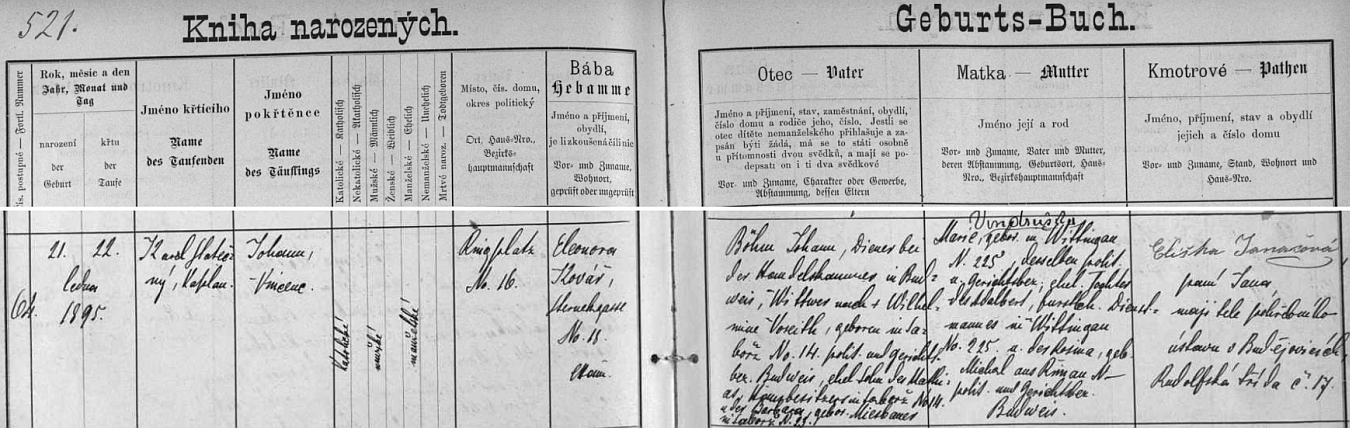 521.
Kniha narozených.
Geburts-Buch.
Čís. postupné — Fortl. Nummer
Rok, měsíc a den
Jahr, Monat und
Tag
narození
der
Geburt
křtu
der
Taufe
Jméno křtícího
Name
des Taufenden
Jméno
pokřtěnce
Name
des Täuflings
Katolické — Katholisch
Nekatolické — Akatholisch
Mužské — Männlich
Ženské — Weiblich
Manželské — Ehelich
Nemanželské — Unehelich
Mrtvě naroz. — Todtgeboren
Místo, čís. domu,
okres politický
Ort, Haus-Nro.,
Bezirks-
hauptmannschaft
Bába
Hebamme
Jméno a příjmení,
obydlí,
je li zkoušená čili nic
Vor- und Zuname,
Wohnort,
geprüft oder ungeprüft
Otec — Vater
Jméno a příjmení, stav, zaměstnání, obydlí,
číslo domu a rodiče jeho, číslo. Jestli se
otec dítěte nemanželského přihlašuje a za-
psán býti žádá, má se to státi osobně
u přítomnosti dvou svědků, a mají se po-
depsati on i ti dva svědkové
Vor- und Zuname, Charakter oder Gewerbe,
Abstammung, dessen Eltern
Matka — Mutter
Jméno její a rod
Vor- und Zuname, Vater und Mutter,
deren Abstammung, Geburtsort, Haus-
Nro., Bezirkshauptmannschaft
Kmotrové — Pathen
Jméno, příjmení, stav a obydlí
jejich a číslo domu
Vor- und Zuname, Stand, Wohnort und
Haus-Nro.
21. 22.
ledna
1895.
Karel
kaplan.
Johann,
Vincenc.
Katolické
mužské
manželské
Ringplatz
No. 16.
Eleonora
Kovář,
Sternekgasse
No. 18.
Böhm Johann, Diener bei
der Handelskammer in Bud-
weis, Wittwer nach + Wilhel-
mine geboren in
No. 14. polit. und gerichts-
bez. Budweis, ehel. Sohn des
No 14.
u. der Barbara, gebor.
Marie, gebor. in Wittingau
N. 225, desselben polit.
u. Gerichtsbez., ehel. Tochter
des Adalbert, fürstl. Dienst-
mannes in Wittingau
No. 225. u. der Rosina, geb.
Michal aus
polit. und Gerichtsbez.
Budweis.
Eliška Janačová
paní Jana,
majitele pohřebního
ústavu v Budějovicích,
Rudolfská třída č. 17.